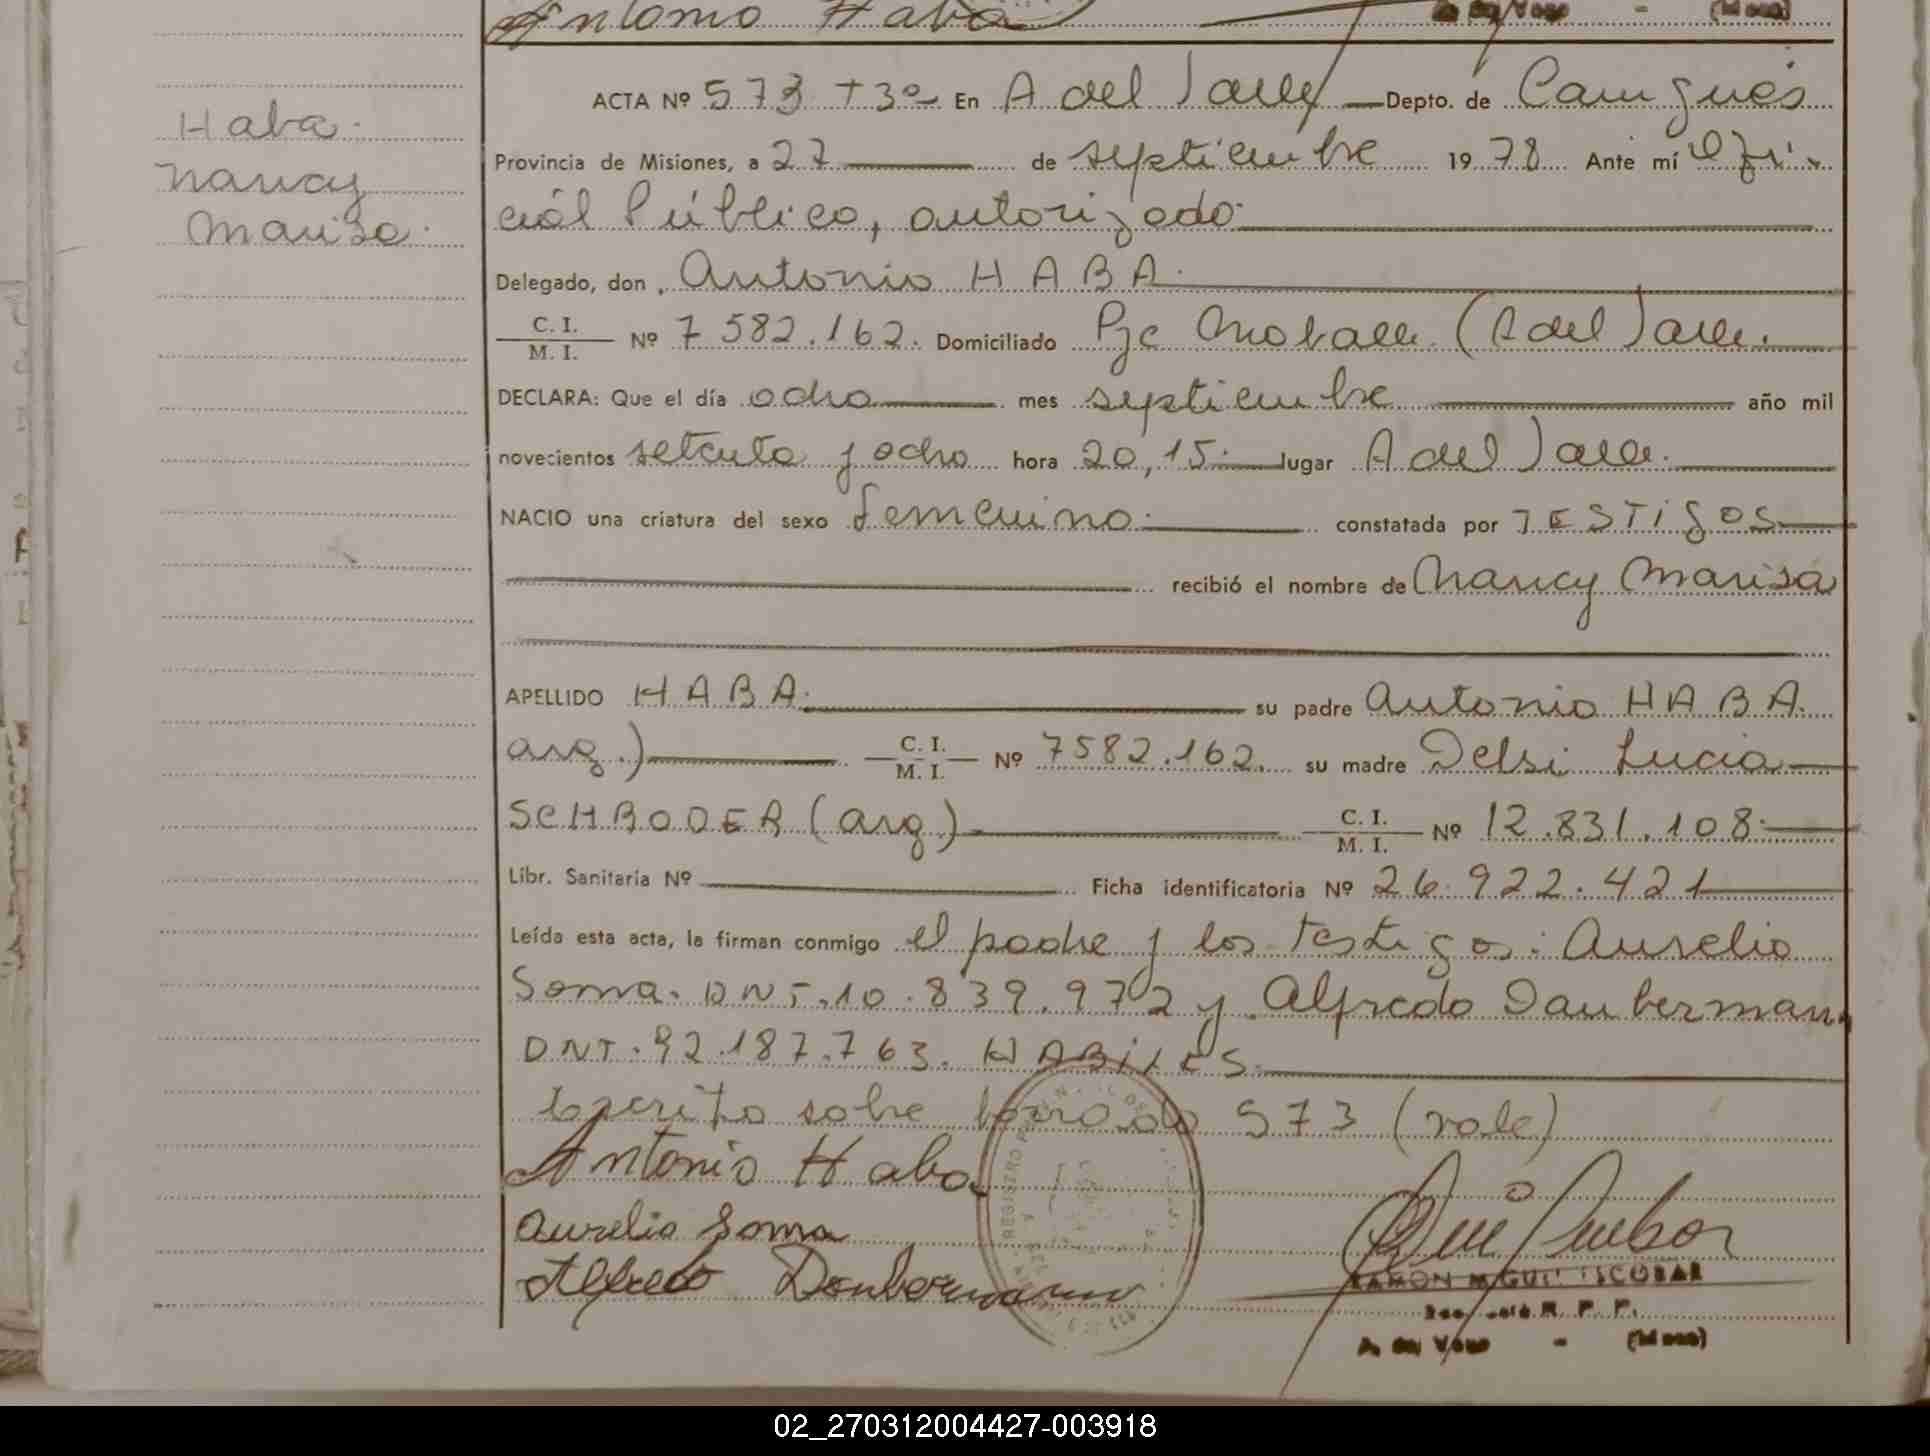 Antonio Haba
Haba.
Nancy
Marisa.
ACTA Nº 573 T3º En A del Valle Depto. de Cainguás
Provincia de Misiones, a 27 de septiembre 1978 Ante mí Ofi-
cial Público, autorizado.
Delegado, don Antonio HABA.
C. I.
M. I. Nº 7582.162. Domiciliado Pje (A del Valle.
DECLARA: Que el día ocho mes septiembre año mil
novecientos setenta y ocho hora 20,15. lugar A del Valle.
NACIO una criatura del sexo femenino. constatada por TESTIGOS
recibió el nombre de Nancy Marisa
APELLIDO HABA. su padre Antonio HABA.
arg.) C. I.
M. I. Nº 7582.162. su madre Delsi Lucia
SCHRODER (arg.) C. I.
M. I. Nº 12.831.108.
Libr. Sanitaria Nº Ficha identificatoria Nº 26.922.421
Leída esta acta, la firman conmigo el padre y los testigos: Aurelio
Soma. DNI.10.839.972 y Alfredo Dauberman.
DNI.92.187.763. HABILES.
Escrito sobre borrado 573 (vale)
Antonio Haba
Aurelio Soma
Alfredo Daubermann
REGISTRO
RAMON MIGUEL ESCOBAR
R. P. P.
A. del Valle - (Mnes)
02_270312004427-003918